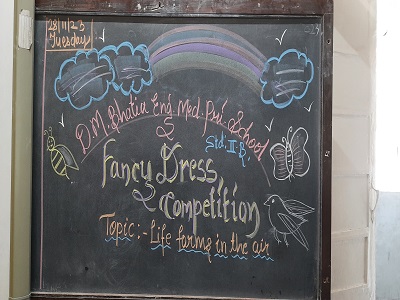 28/11/23
Tuesday
D.M. Bhatia Eng. Med. Pri. School
Std. II-B.
Fancy Dress
Competition
Topic:- Life farms in the air